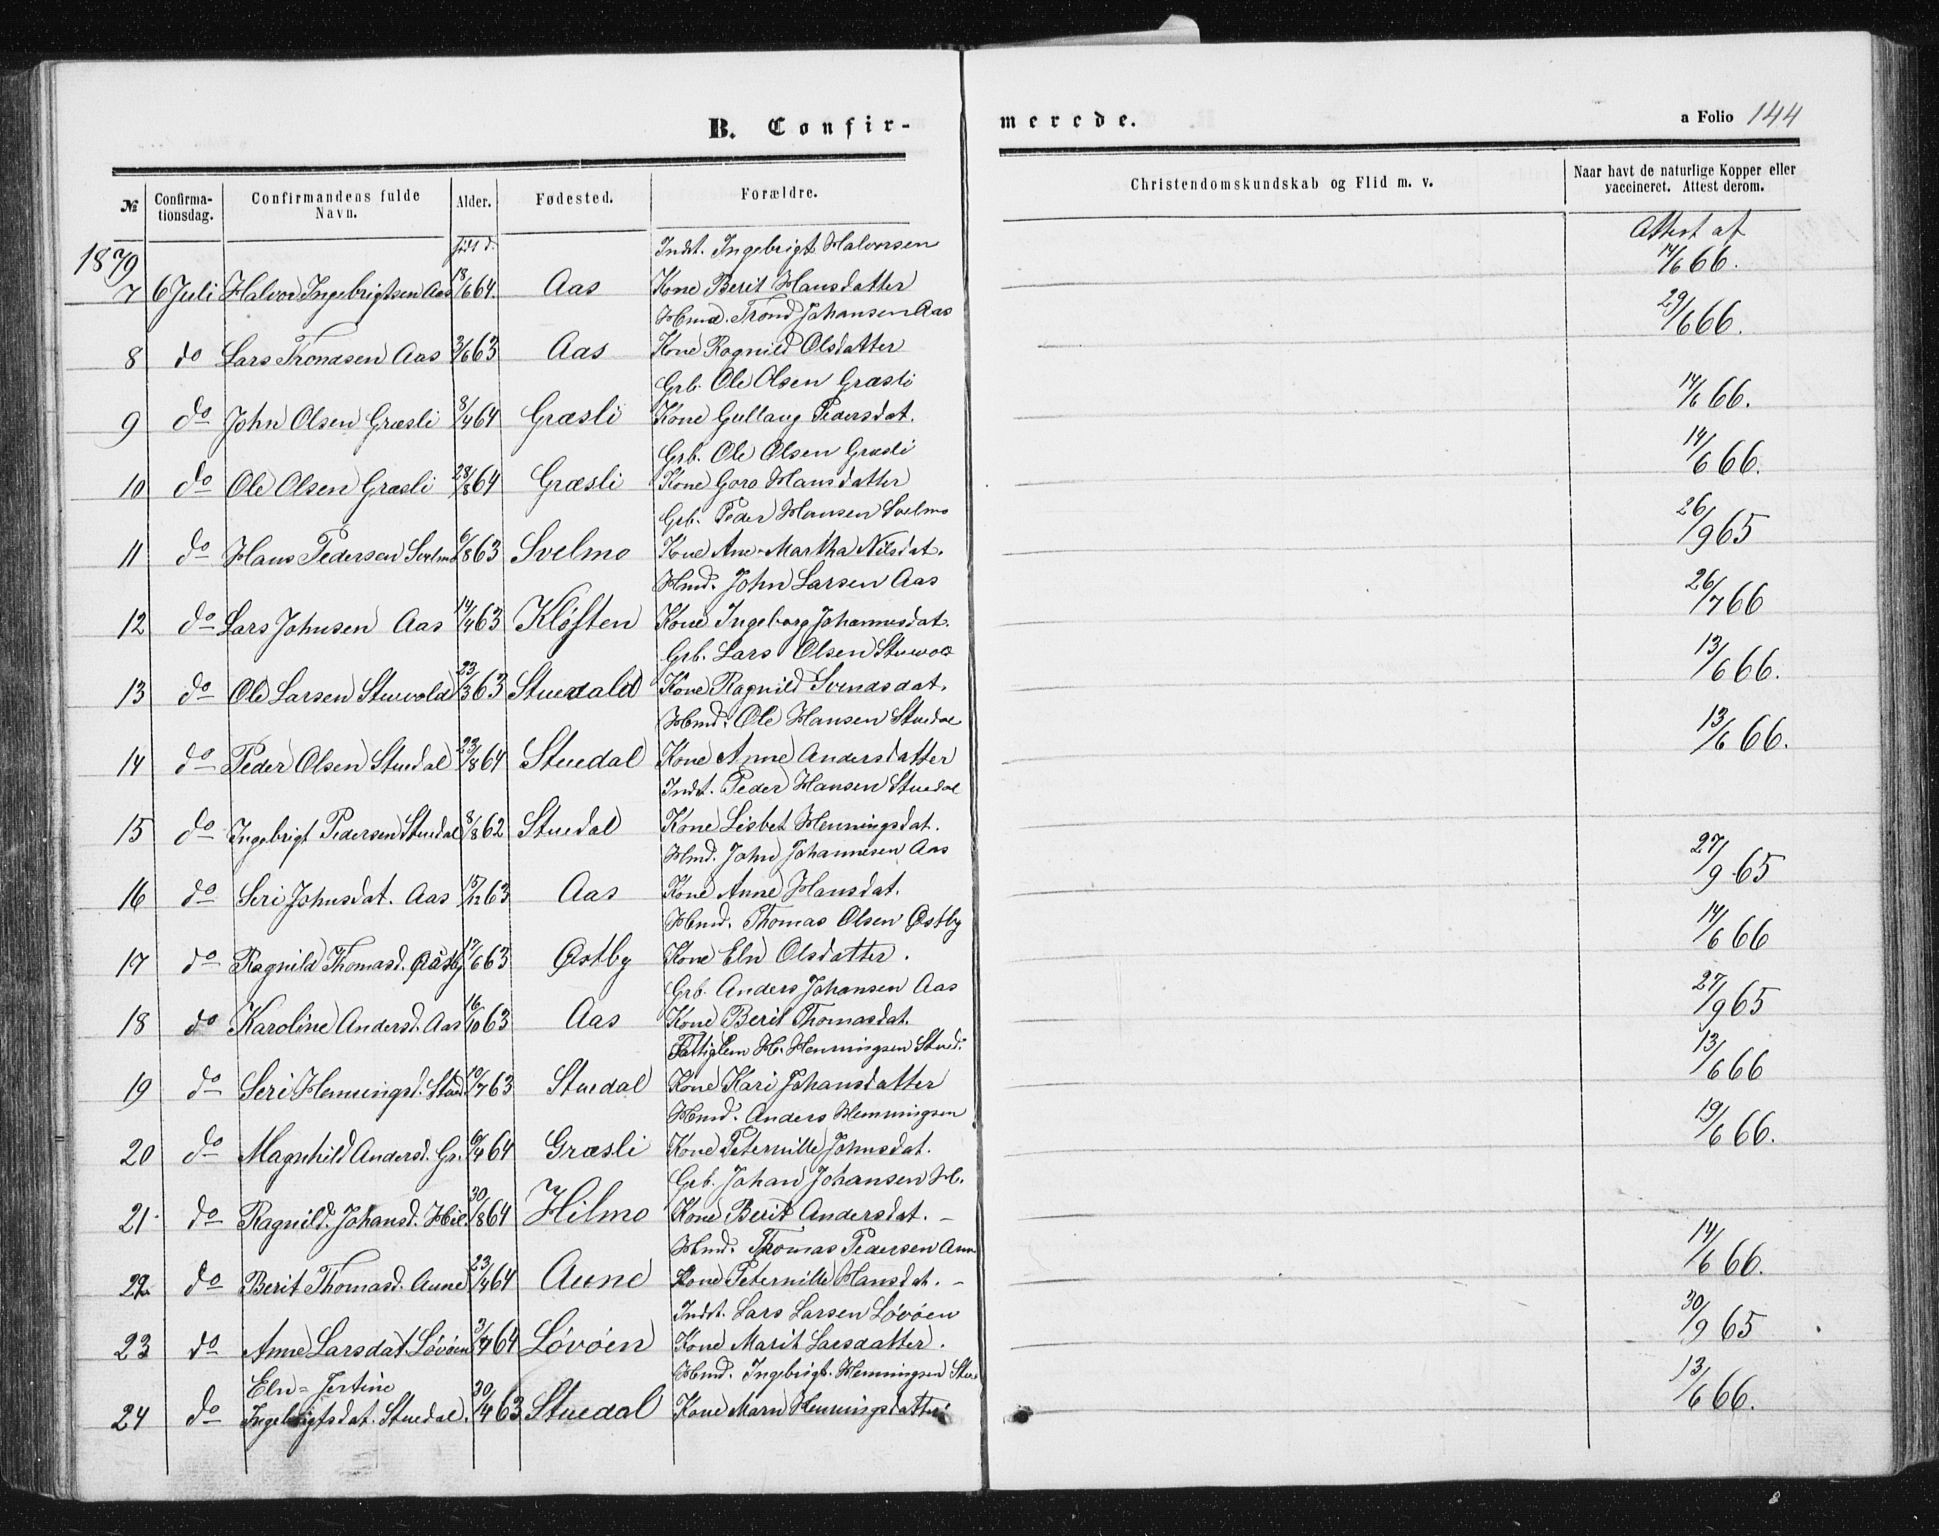 B. Confir-
merede.
a Folio 144
№ Confirma-tionsdag. Confirmandens fulde Navn. Alder. Fødested. Forældre. Christendomskundskab og Flid m. v. Naar havt de naturlige Kopper eller vaccineret. Attest derom.
1879 født d. Indst. Ingebrigt Halvorsen Attest af
7 6 Juli Halvor Ingebrigtsen Aas 18/6 64. Aas Kone Berit Hansdatter 14/6 66.
Hmd. Trond Johansen Aas
8 do Lars Trondsen Aas 3/6 63 Aas Kone Ragnild Olsdatter 29/6 66.
Grb. Ole Olsen Græsli
9 do John Olsen Græsli 8/4 64 Græsli Kone Gullaug Pedersdat. 14/6 66.
Grb. Ole Olsen Græsli
10 do Ole Olsen Græsli 28/8 64 Græsli Kone Goro Hansdatter 14/6 66.
Grb. Peder Hansen Svelmo
11 do Hans Pedersen Svelmo 6/8 63 Svelmo Kone Ane Martha Nilsdat. 26/9 65
Hmd. John Larsen Aas
12 do Lars Johnsen Aas 14/4 63 Kløften Kone Ingeborg Johannesdat. 26/7 66
Grb. Lars Olsen Stuevold
13 do Ole Larsen Stuevold 23/3 63 Stuedald Kone Ragnild Svendsdat. 13/6 66.
Hmd. Ole Hansen Stuedal
14 do Peder Olsen Stuedal 23/8 64 Stuedal Kone Anne Andersdatter 13/6 66.
Indst. Peder Hansen Stuedal
15 do Ingebrigt Pedersen Stuedal 8/8 62 Stuedal Kone Lisbet Henningsdat.
Hmd. John Johannesen Aas
16 do Seri Johnsdat. Aas 15/12 63 Aas Kone Anne Hansdat. 27/9 65
Hmd. Thomas Olsen Østby
17 do Ragnild Thomasd. Østby 17/6 63 Østby Kone Eln Olsdatter. 14/6 66
Grb. Anders Johansen Aas
18 do Karoline Andersd. Aas 16/10 63 Aas Kone Berit Thomasdat. 27/9 65
Fattiglem H. Henningsen Stued.
19 do Seri Henningsd. Stued. 10/7 63 Stuedal Kone Kari Johansdatter 13/6 66
Hmd. Anders Henningsen
20 do Magnhild Andersd. Gr. 6/4 64 Græsli Kone Peternille Johnsdat. 19/6 66.
Grb. Johan Johansen H.
21 do Ragnild. Johansd. Hil. 30/8 64 Hilmo Kone Berit Andersdat.
Hmd. Thomas Pedersen Aune
22 do Berit Thomasd. Aune 23/4 64 Aune Kone Peternille Hansdat. 14/6 66.
Indst. Lars Larsen Løvøen
23 do Anne Larsdat Løvøen 3/4 64 Løvøen Kone Marit Larsdatter. 30/9 65
Eln = Jertine Hmd. Ingebrigt. Henningsen Stue
24 do Ingebrigtsdat. Stuedal. 30/4 63 Stuedal Kone Marn Henningsdatter 13/6 66.